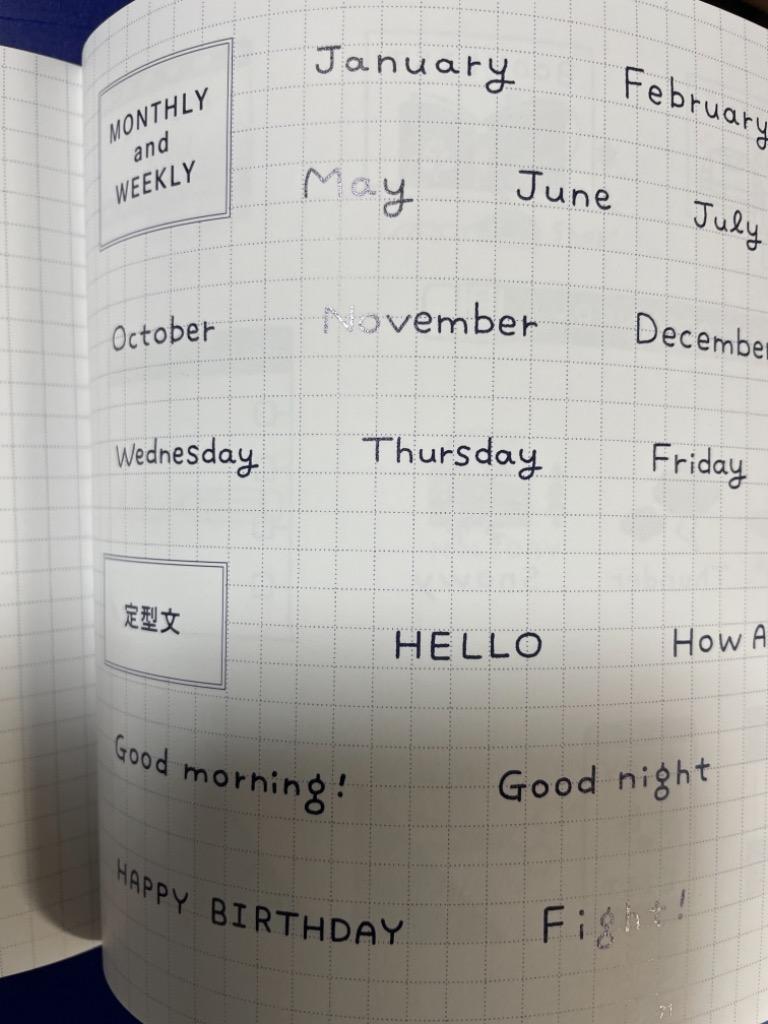 MONTHLY
and
WEEKLY
January
February
May
June
July
October
November
December
Wednesday
Thursday
Friday
定型文
HELLO
How A
Good morning!
Good night
HAPPY BIRTHDAY
Fight!
71